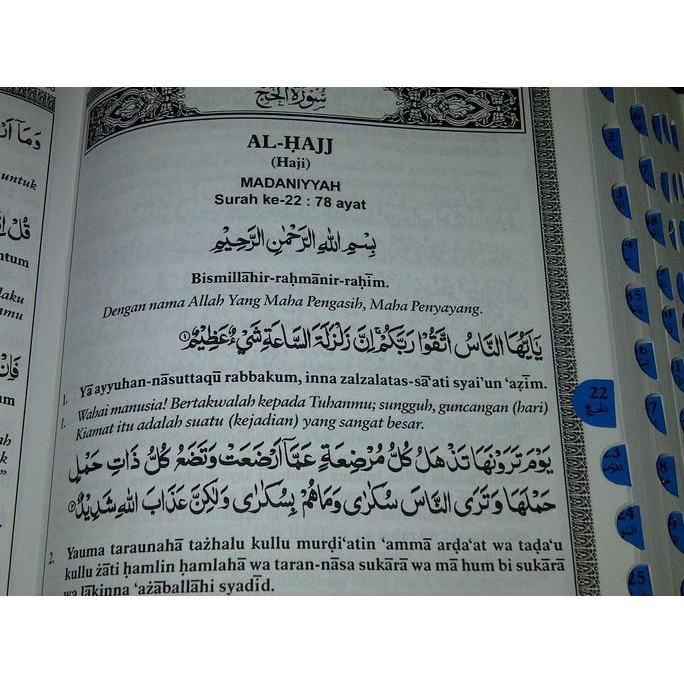 سُورَةُ الْحَجِّ
AL-ḤAJJ
(Haji)
MADANIYYAH
Surah ke-22 : 78 ayat
بِسْمِ اللّٰهِ الرَّحْمٰنِ الرَّحِيْمِ
Bismillāhir-raḥmānir-raḥīm.
Dengan nama Allah Yang Maha Pengasih, Maha Penyayang.
يٰٓاَيُّهَا النَّاسُ اتَّقُوْا رَبَّكُمْۚ اِنَّ زَلْزَلَةَ السَّاعَةِ شَيْءٌ عَظِيْمٌ ۝١
1. Yā ayyuhan-nāsuttaqū rabbakum, inna zalzalatas-sā‘ati syai'un ‘aẓīm.
1. Wahai manusia! Bertakwalah kepada Tuhanmu; sungguh, guncangan (hari)
Kiamat itu adalah suatu (kejadian) yang sangat besar.
يَوْمَ تَرَوْنَهَا تَذْهَلُ كُلُّ مُرْضِعَةٍ عَمَّآ اَرْضَعَتْ وَتَضَعُ كُلُّ ذَاتِ حَمْلٍ
حَمْلَهَا وَتَرَى النَّاسَ سُكٰرٰى وَمَا هُمْ بِسُكٰرٰى وَلٰكِنَّ عَذَابَ اللّٰهِ شَدِيْدٌ ۝٢
2. Yauma taraunahā tażhalu kullu murḍi‘atin ‘ammā arḍa‘at wa taḍa‘u
kullu żāti ḥamlin ḥamlahā wa taran-nāsa sukārā wa mā hum bi sukārā
wa lākinna ‘ażāballāhi syadīd.
untuk
22
الحج
23
24
25